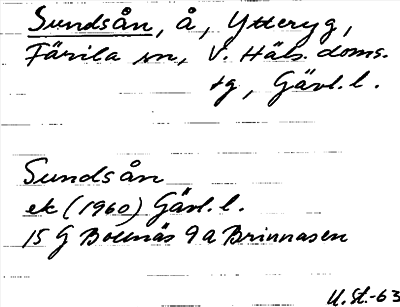 Sundsån, å, Ytteryg,
Färila sn, V. Häls. doms.
tg, Gävl. l.
Sundsån
ek (1960) Gävl. l.
15 G Bollnäs 9 a Brinnåsen
U. St.-63